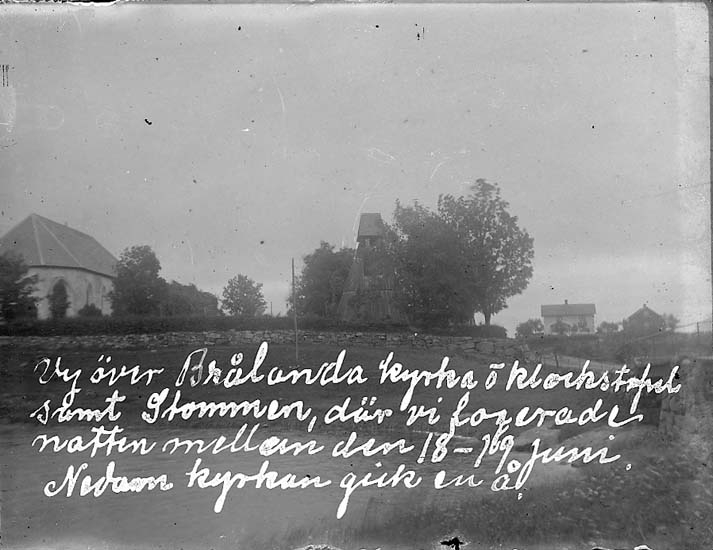 Vy över Brålanda kyrka o klockstapel
samt Stommen, där vi logerade
natten mellan den 18-19 juni.
Nedom kyrkan gick en å.